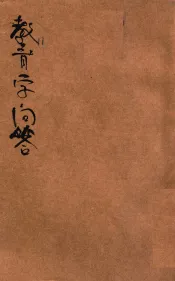 教育字问答